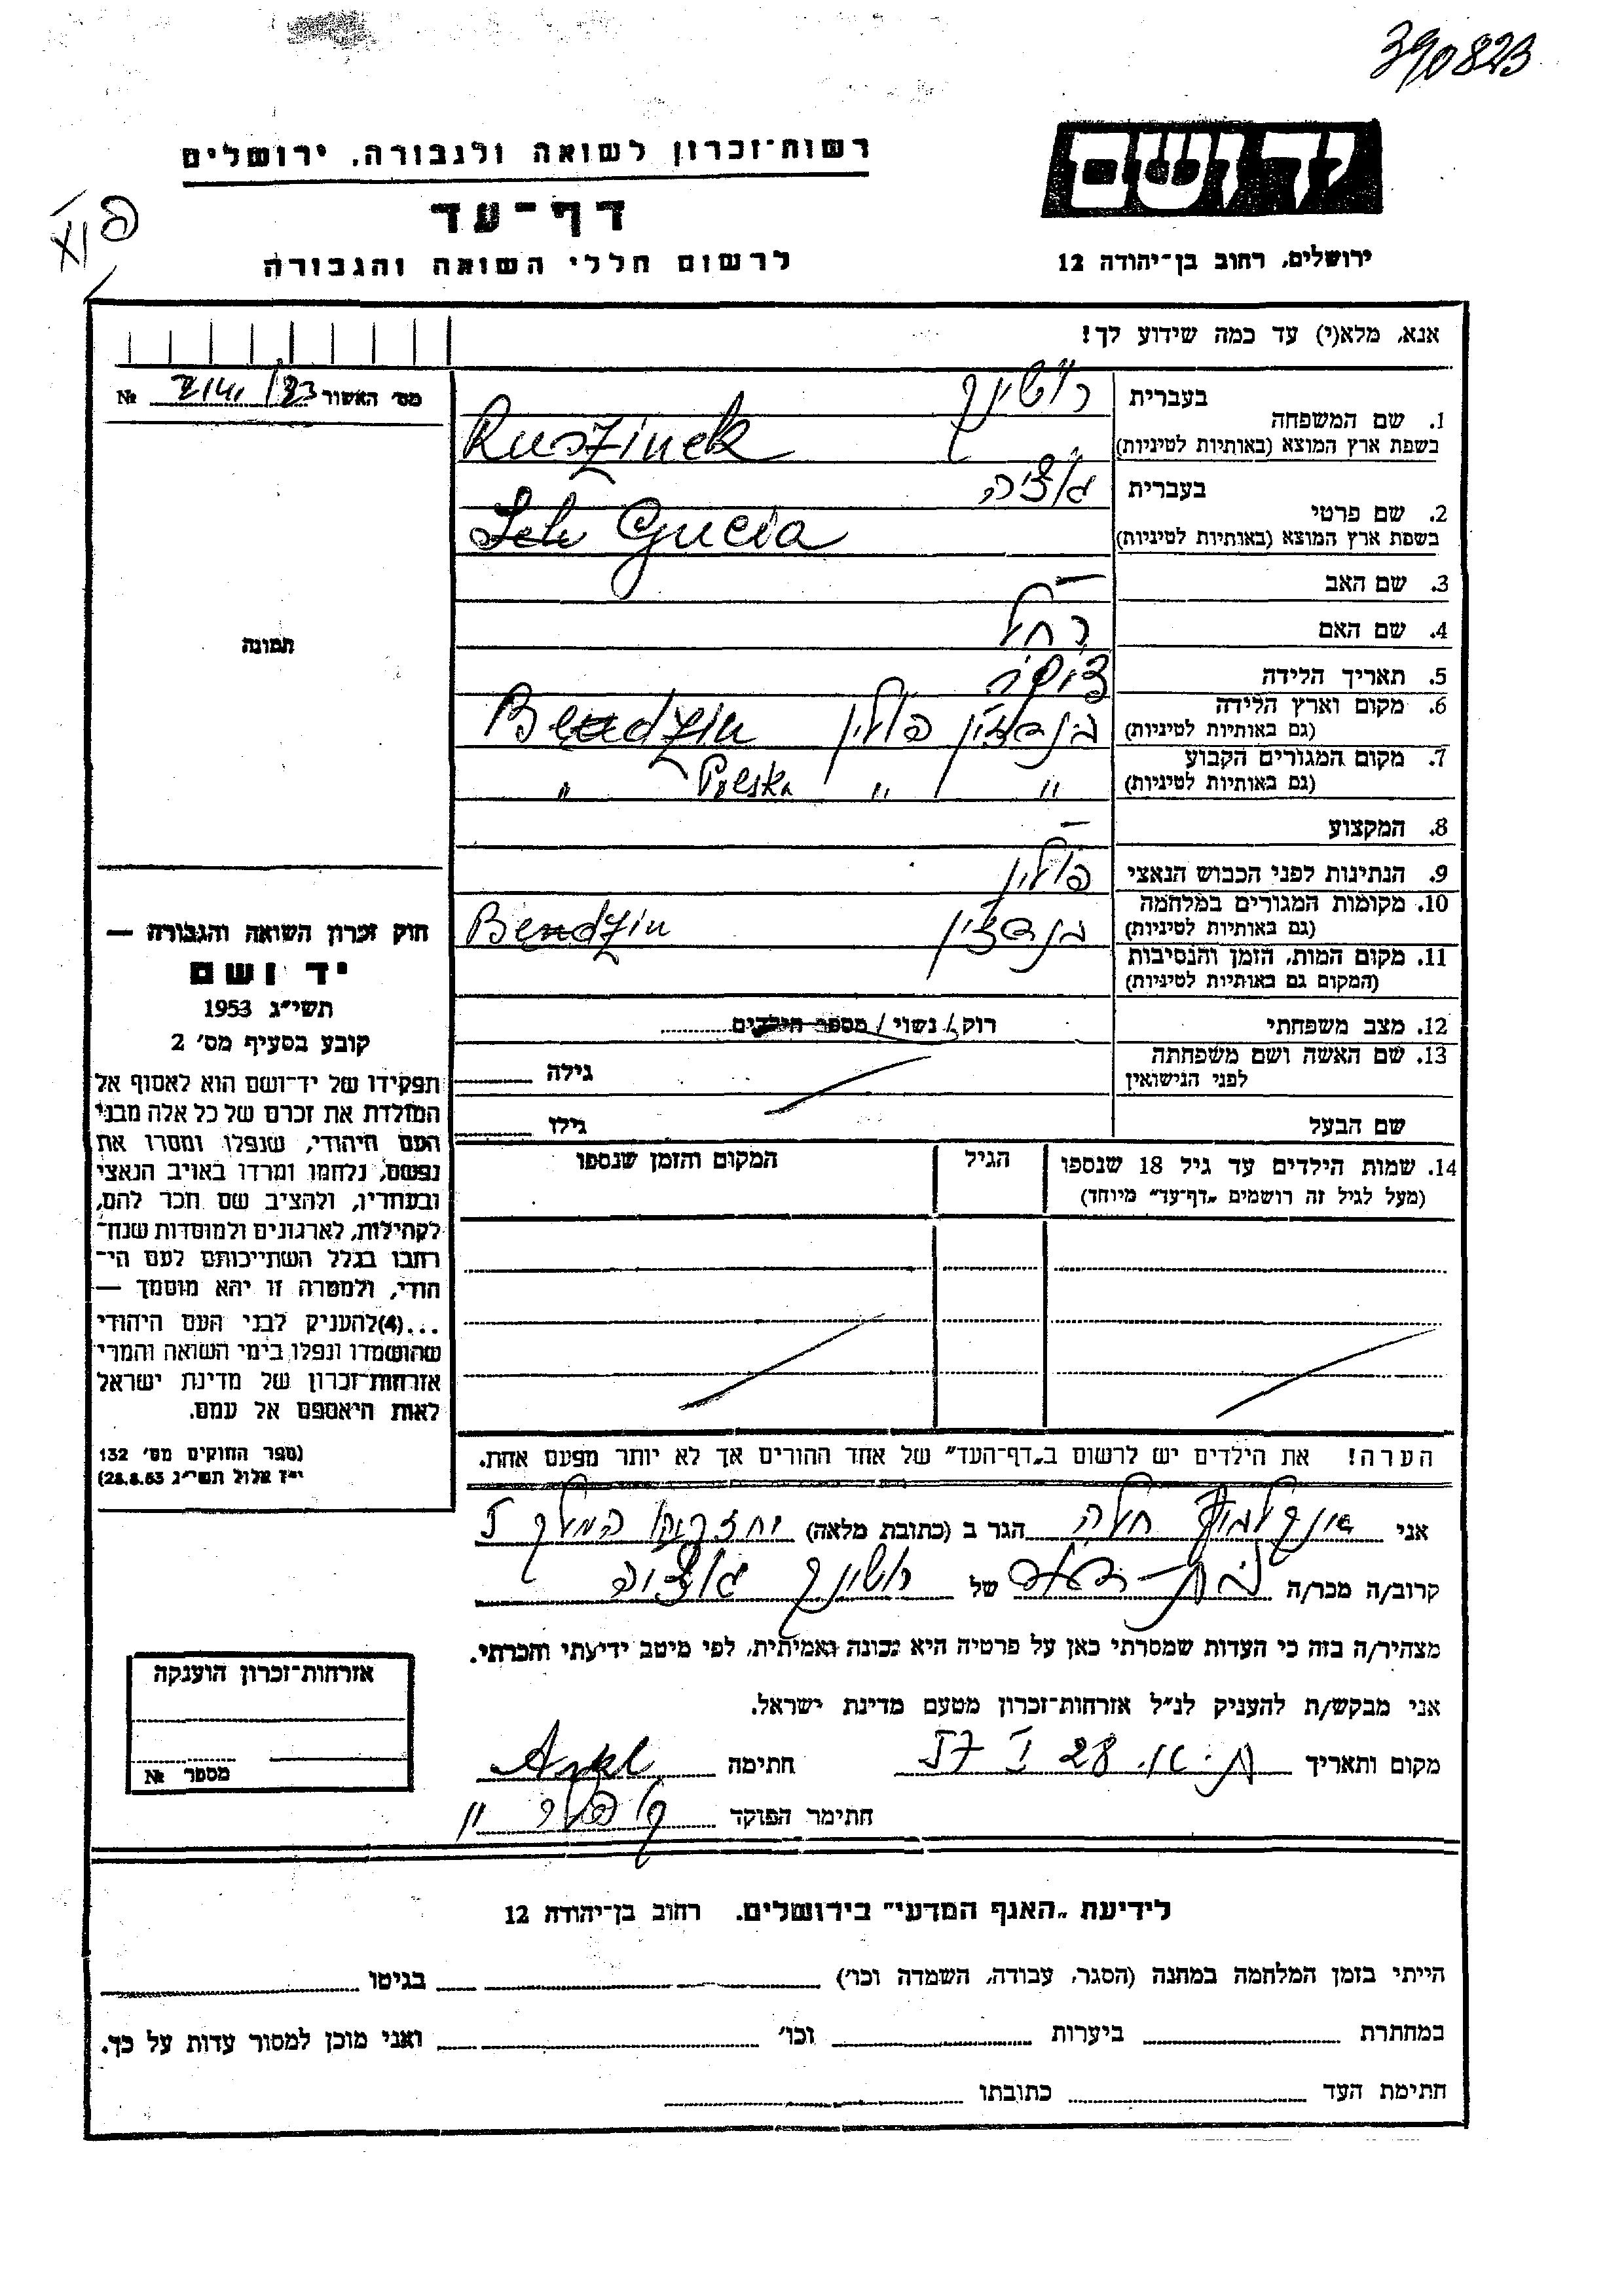 390823
רשות־זכרון לשואה ולגבורה, ירושלים
יד ושם
דף־עד
לרשום חללי השואה והגבורה
ירושלים, רחוב בן־יהודה 12
אנא, מלא(י) עד כמה שידוע לך!
מס׳ האשור № 
1. שם המשפחה בעברית
בשפת ארץ המוצא (באותיות לטיניות) Ruszinek
2. שם פרטי בעברית גוציה
בשפת ארץ המוצא (באותיות לטיניות) Gucia
3. שם האב —
4. שם האם רחל
5. תאריך הלידה
6. מקום וארץ הלידה (גם באותיות לטיניות) בנדצין פולין Bendzin
7. מקום המגורים הקבוע (גם באותיות לטיניות) " " Polska "
8. המקצוע —
9. הנתינות לפני הכבוש הנאצי פולין
10. מקומות המגורים במלחמה (גם באותיות לטיניות) בנדצין Bendzin
11. מקום המות, הזמן והנסיבות (המקום גם באותיות לטיניות)
12. מצב משפחתי רוק/ נשוי/ מספר הילדים
13. שם האשה ושם משפחתה לפני הנישואין גילה
שם הבעל גילו
14. שמות הילדים עד גיל 18 שנספו הגיל המקום והזמן שנספו
(מעל לגיל זה רושמים „דף־עד״ מיוחד)
הערה! את הילדים יש לרשום ב„דף־העד״ של אחד ההורים אך לא יותר מפעם אחת.
תמונה
חוק זכרון השואה והגבורה —
יד ושם
תשי״ג 1953
קובע בסעיף מס׳ 2
תפקידו של יד־ושם הוא לאסוף אל
המולדת את זכרם של כל אלה מבני
העם היהודי, שנפלו ומסרו את
נפשם, נלחמו ומרדו באויב הנאצי
ובעוזריו, ולהציב שם וזכר להם,
לקהילות, לארגונים ולמוסדות שנח־
רבו בגלל השתייכותם לעם הי־
הודי, ולמטרה זו יהא מוסמך —
...(4) להעניק לבני העם היהודי
שהושמדו ונפלו בימי השואה והמרי
אזרחות־זכרון של מדינת ישראל
לאות היאספם אל עמם.
(ספר החוקים מס׳ 132
י״ז אלול תשי״ג 28.8.53)
אני הגר ב (כתובת מלאה) המלך
קרוב/ה מכר/ה של גוציה
מצהיר/ה בזה כי העדות שמסרתי כאן על פרטיה היא נכונה ואמיתית, לפי מיטב ידיעתי והכרתי.
אני מבקש/ת להעניק לנ״ל אזרחות־זכרון מטעם מדינת ישראל.
מקום ותאריך 28 57 חתימה
חתימר הפוקד
אזרחות־זכרון הוענקה
מספר №
לידיעת „האגף המדעי״ בירושלים. רחוב בן־יהודה 12
הייתי בזמן המלחמה במחנה (הסגר, עבודה, השמדה וכו׳) בגיטו
במחתרת ביערות וכו׳ ואני מוכן למסור עדות על כך.
חתימת העד כתובתו